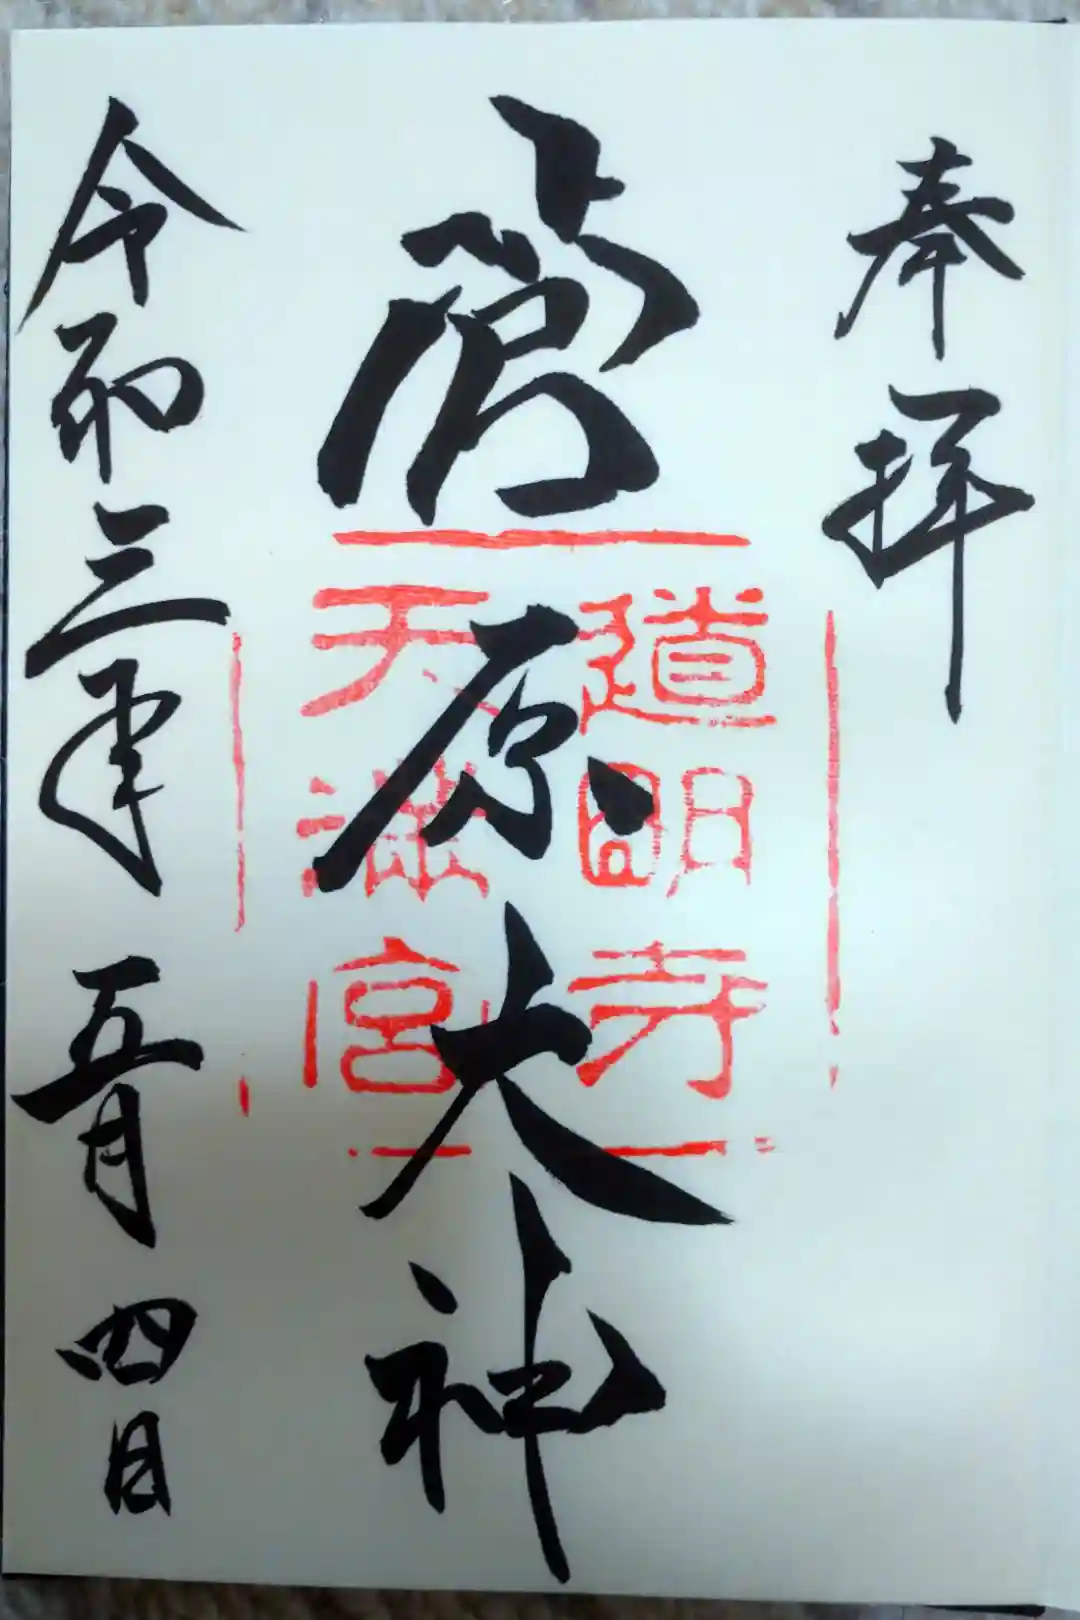 奉拝
菅原大神
道明寺
天滿宮
令和三年五月四日